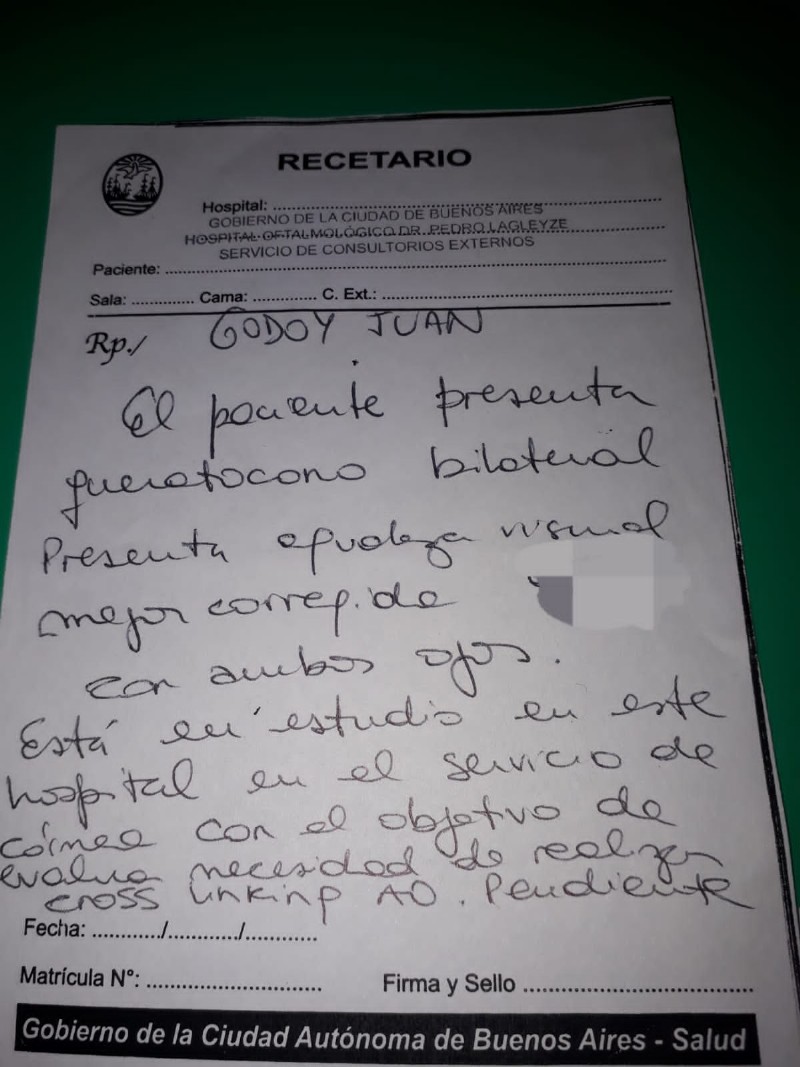 RECETARIO
Hospital: ........................
GOBIERNO DE LA CIUDAD DE BUENOS AIRES
HOSPITAL OFTALMOLÓGICO DR. PEDRO LAGLEYZE
SERVICIO DE CONSULTORIOS EXTERNOS
Paciente: ........................
Sala: ............. Cama: ............. C. Ext.: ........................
Rp./ GODOY JUAN
El paciente presenta
queratocono bilateral
Presenta agudeza visual
mejor corregida
con ambos ojos.
Está en estudio en este
hospital en el servicio de
córnea con el objetivo de
evaluar necesidad de realizar
cross linking AO. Pendiente
Fecha: .........../.........../...........
Matrícula N°: ........................ Firma y Sello ........................
Gobierno de la Ciudad Autónoma de Buenos Aires - Salud